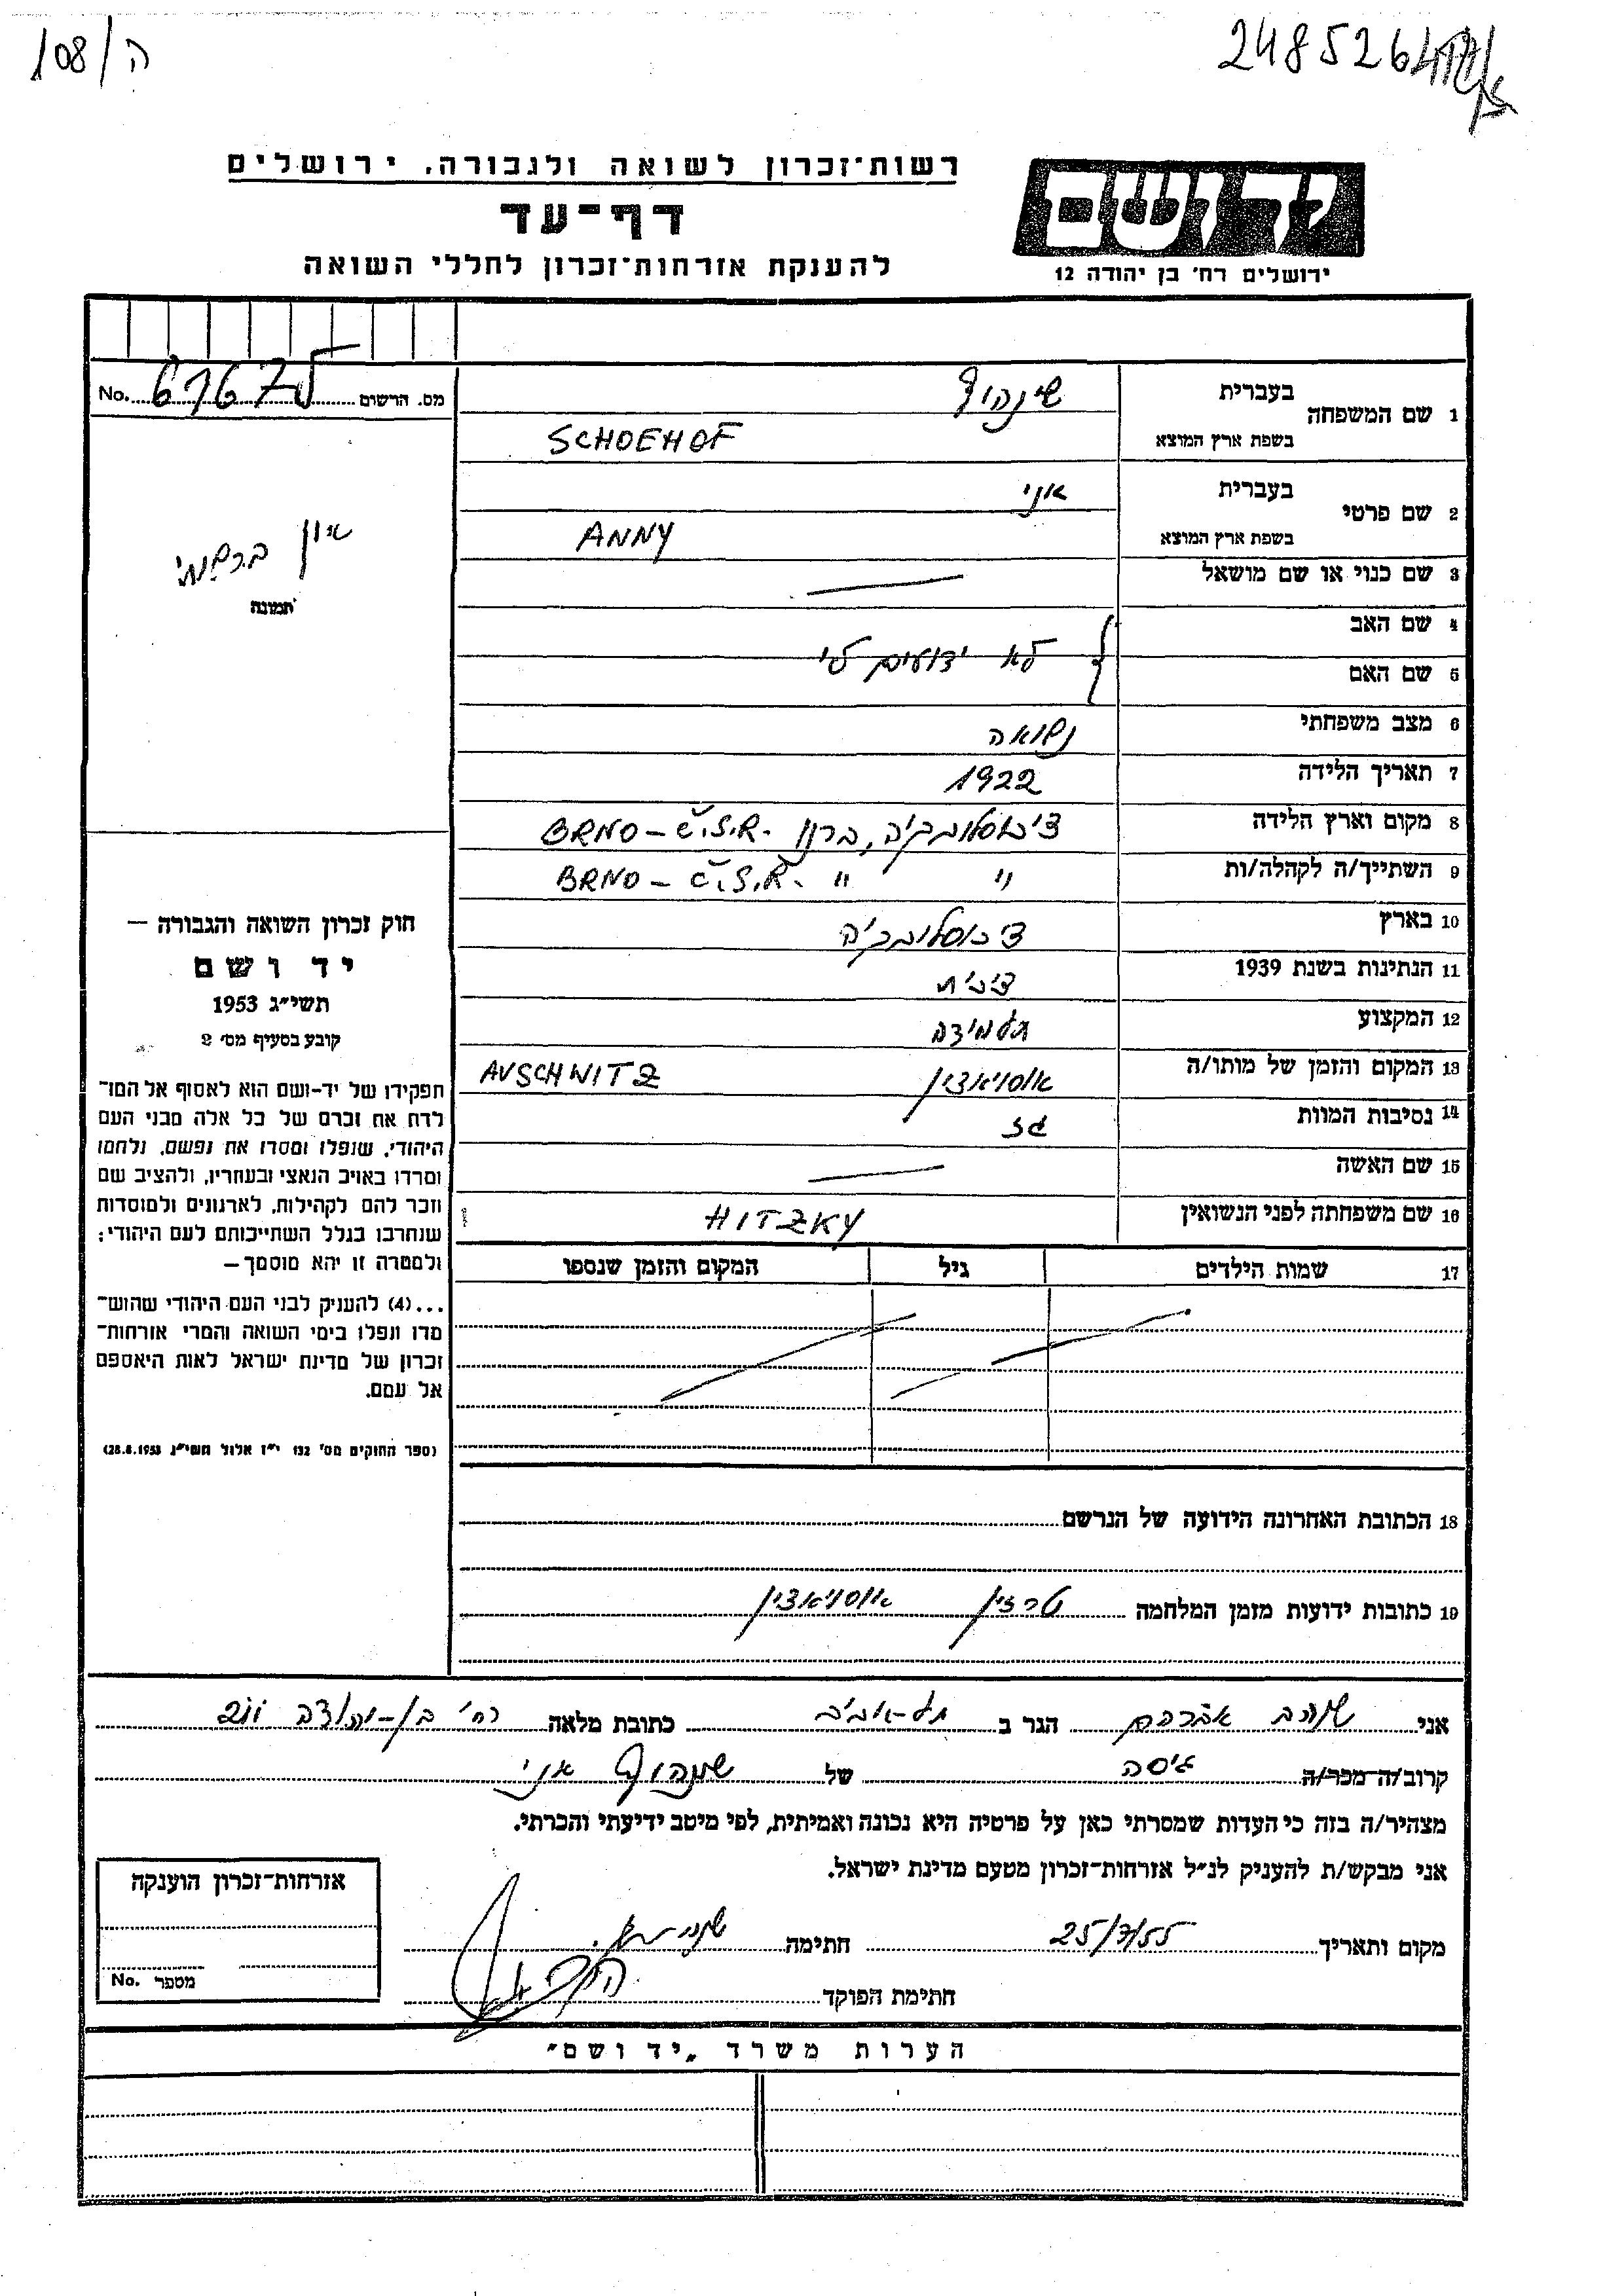 ה/108
2485264
רשות־זכרון לשואה ולגבורה, ירושלים
דף־עד
להענקת אזרחות־זכרון לחללי השואה
יד ושם
ירושלים רח' בן יהודה 12
מס. הרשום 67675 No.
1 שם המשפחה בעברית שינהוף
בשפת ארץ המוצא SCHOEHOF
2 שם פרטי בעברית אני
בשפת ארץ המוצא ANNY
3 שם כנוי או שם מושאל
4 שם האב
לא ידועים לי
5 שם האם
6 מצב משפחתי נשואה
7 תאריך הלידה 1922
8 מקום וארץ הלידה צ'כוסלובקיה, ברנו BRNO – Č.S.R.
9 השתייך/ה לקהלה/ות " " BRNO – Č.S.R.
10 בארץ צ'כוסלובקיה
11 הנתינות בשנת 1939 צ'כית
12 המקצוע תלמידה
13 המקום והזמן של מותו/ה אוסויאנצין AUSCHWITZ
14 נסיבות המוות גז
15 שם האשה
16 שם משפחתה לפני הנשואין HITZKY
17 שמות הילדים גיל המקום והזמן שנספו
18 הכתובת האחרונה הידועה של הנרשם
19 כתובות ידועות מזמן המלחמה טרזין אוסויאנצין
אין ברשותי
תמונה
חוק זכרון השואה והגבורה —
יד ושם
תשי"ג 1953
קובע בסעיף מס' 2
תפקידו של יד-ושם הוא לאסוף אל המו־
לדת את זכרם של כל אלה מבני העם
היהודי, שנפלו ומסרו את נפשם, נלחמו
ומרדו באויב הנאצי ובעוזריו, ולהציב שם
וזכר להם לקהילות, לארגונים ולמוסדות
שנחרבו בגלל השתייכותם לעם היהודי;
ולמטרה זו יהא מוסמך —
...(4) להעניק לבני העם היהודי שהוש־
מדו ונפלו בימי השואה והמרי אזרחות־
זכרון של מדינת ישראל לאות היאספם
אל עמם.
(ספר החוקים מס' 132 י"ז אלול תשי"ג 28.8.1953)
אני אברהם הגר ב תל-אביב כתובת מלאה רח' בן-יהודה
קרוב/ה מכר/ה גיסה של שינהוף אני
מצהיר/ה בזה כי העדות שמסרתי כאן על פרטיה היא נכונה ואמיתית, לפי מיטב ידיעתי והכרתי.
אני מבקש/ת להעניק לנ"ל אזרחות-זכרון מטעם מדינת ישראל.
מקום ותאריך 25/7/55 חתימה
חתימת הפוקד
אזרחות־זכרון הוענקה
מספר No.
הערות משרד "יד ושם"